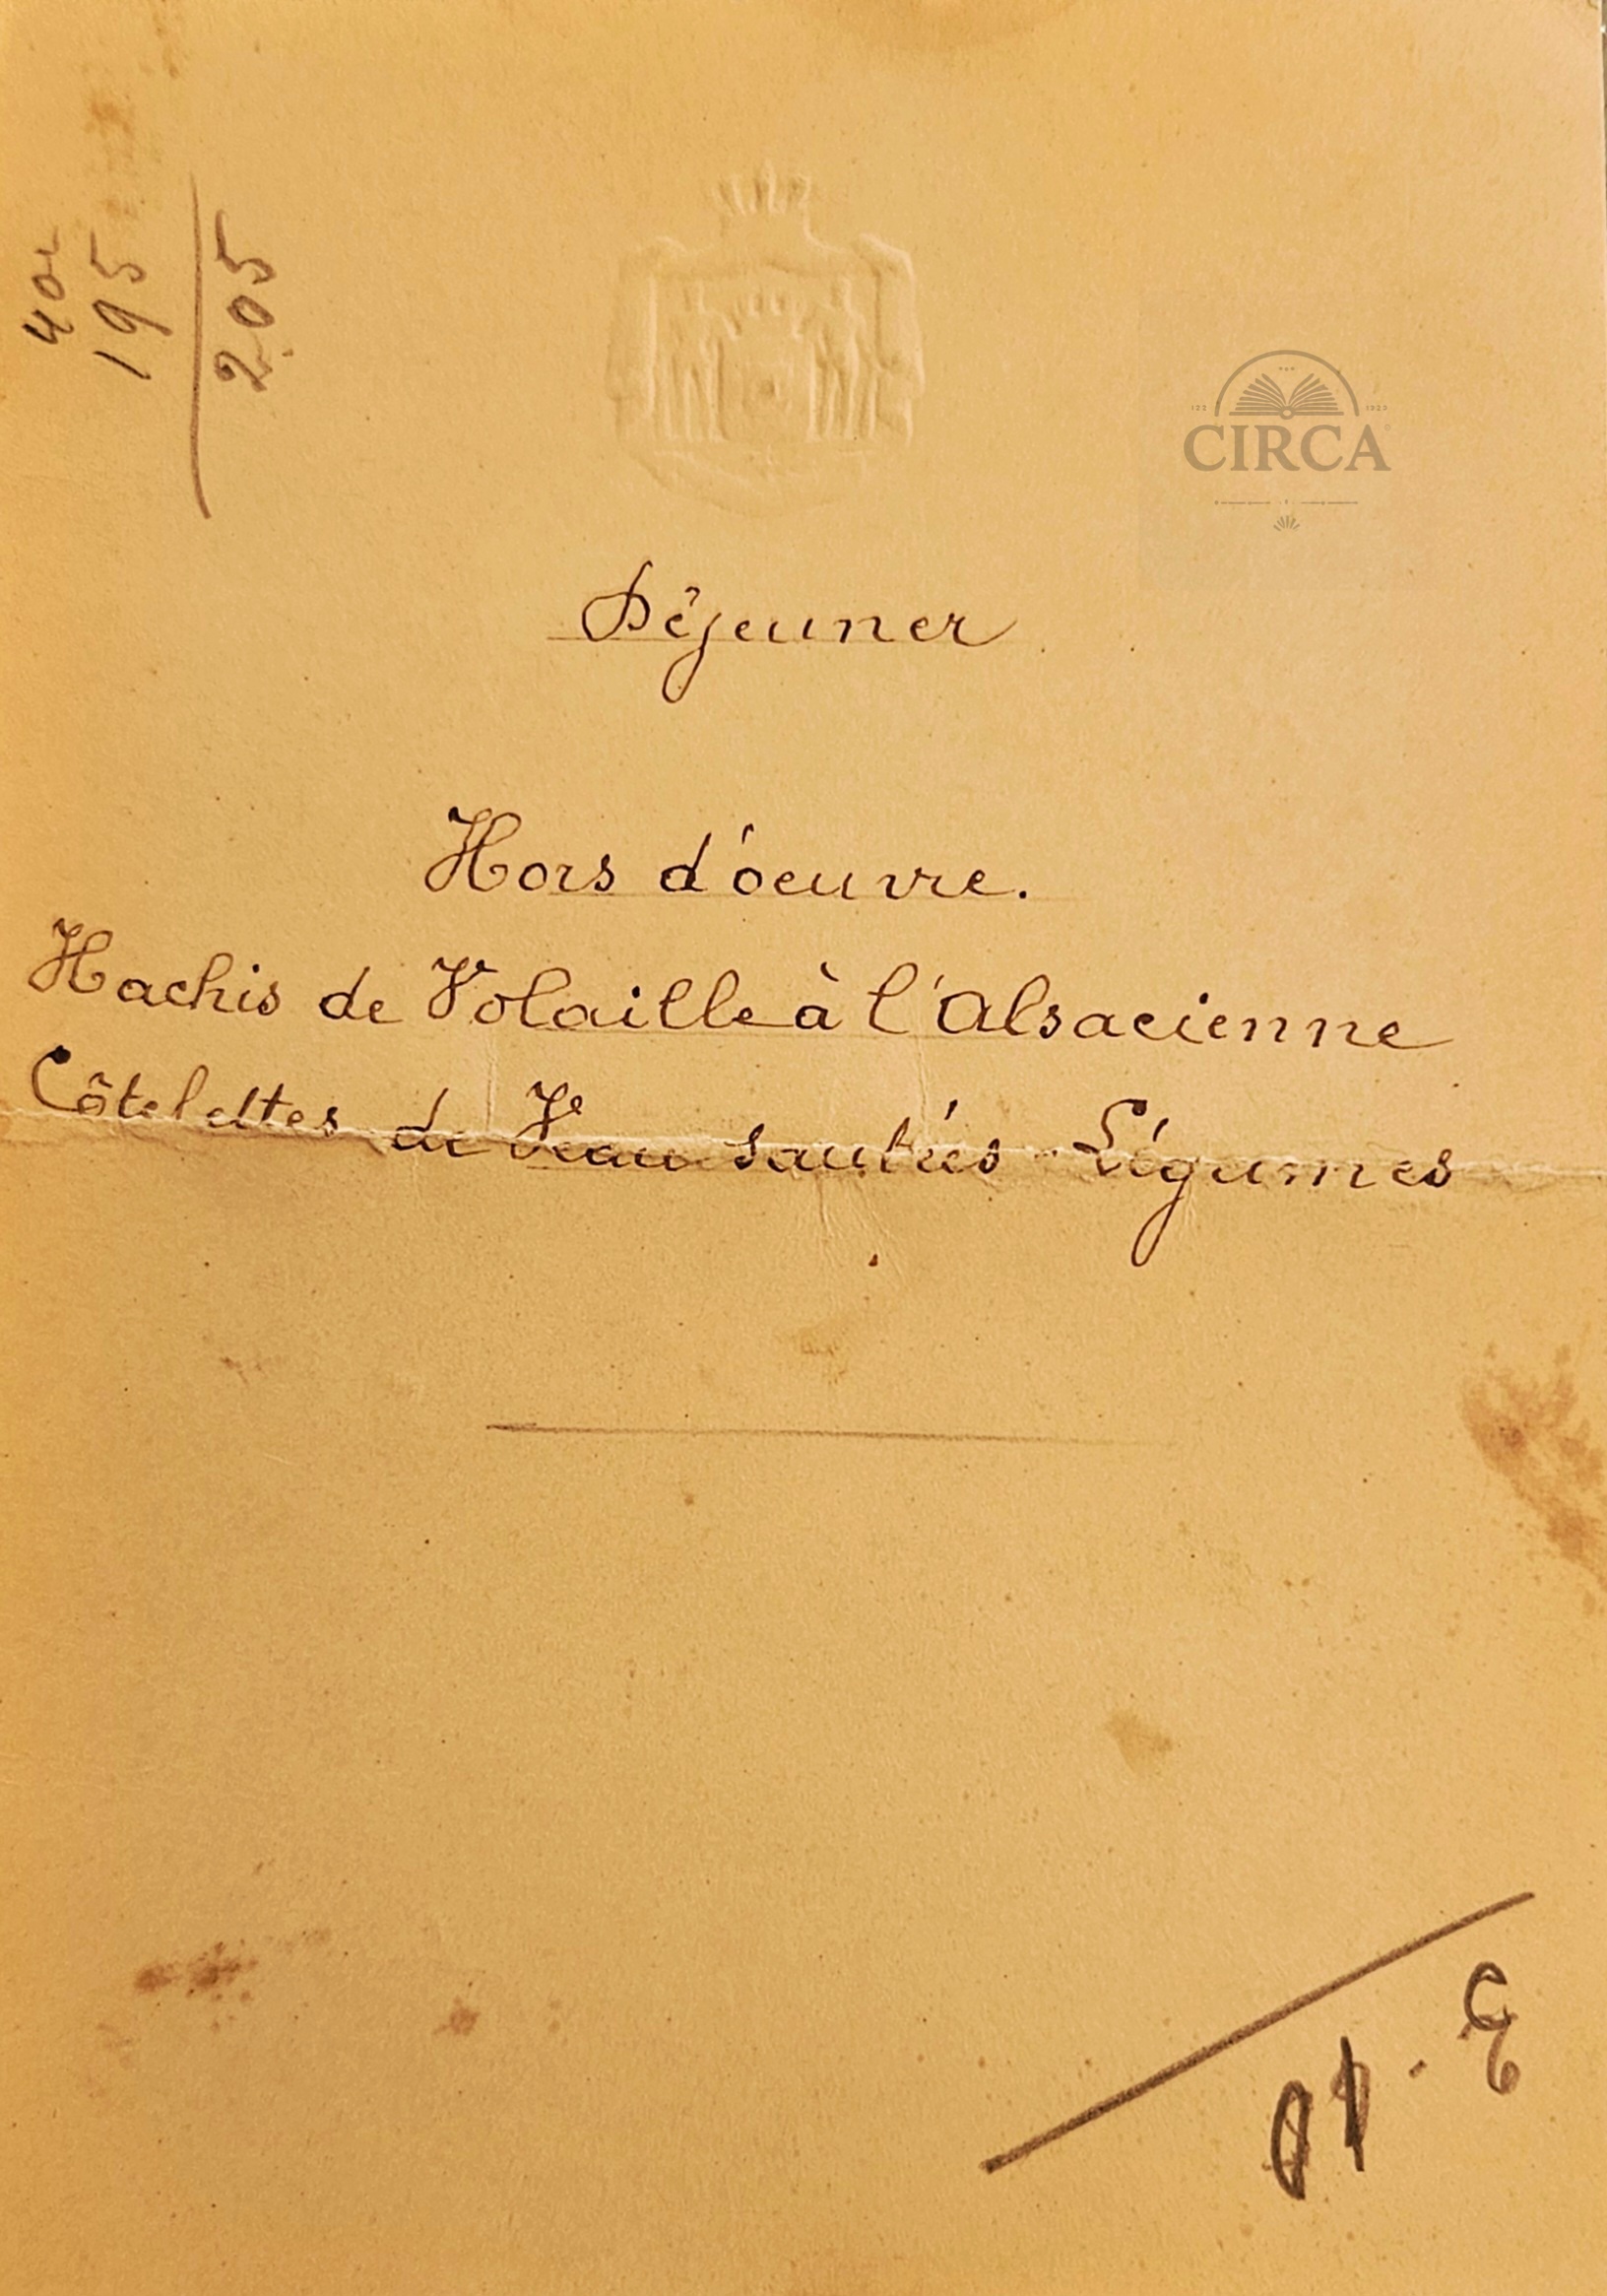 400
195
205
CIRCA
Déjeuner
Hors d'oeuvre.
Hachis de Volaille à l'Alsacienne
Côtelettes de Veau sautées - Légumes